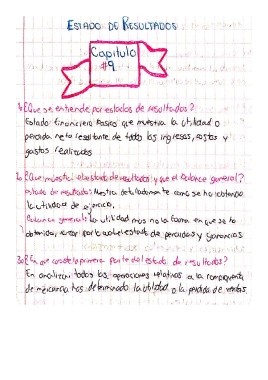 ESTADO DE RESULTADOS
Capitulo
#9
1. ¿Que se entiende por estados de resultados?
Estado financiero basico que muestra la utilidad o
perdida neta resultante de todo los ingresos, costos y
gastos realizados
2. ¿Que muestra el estado de resultados y que el balance general?
estado de resultados: Mostra detalladamente como se ha obtenido
la utilidad del ejercicio.
Balance general: La utilidad mas no la forma en que se ha
obtenido, por lo cual el estado de perdidas y ganancias
3. ¿En que consiste la primera parte del estado de resultados?
En analizar todas las operaciones relativas a la compraventa
de mercancia hasta determinado la utilidad o la perdida de ventas.